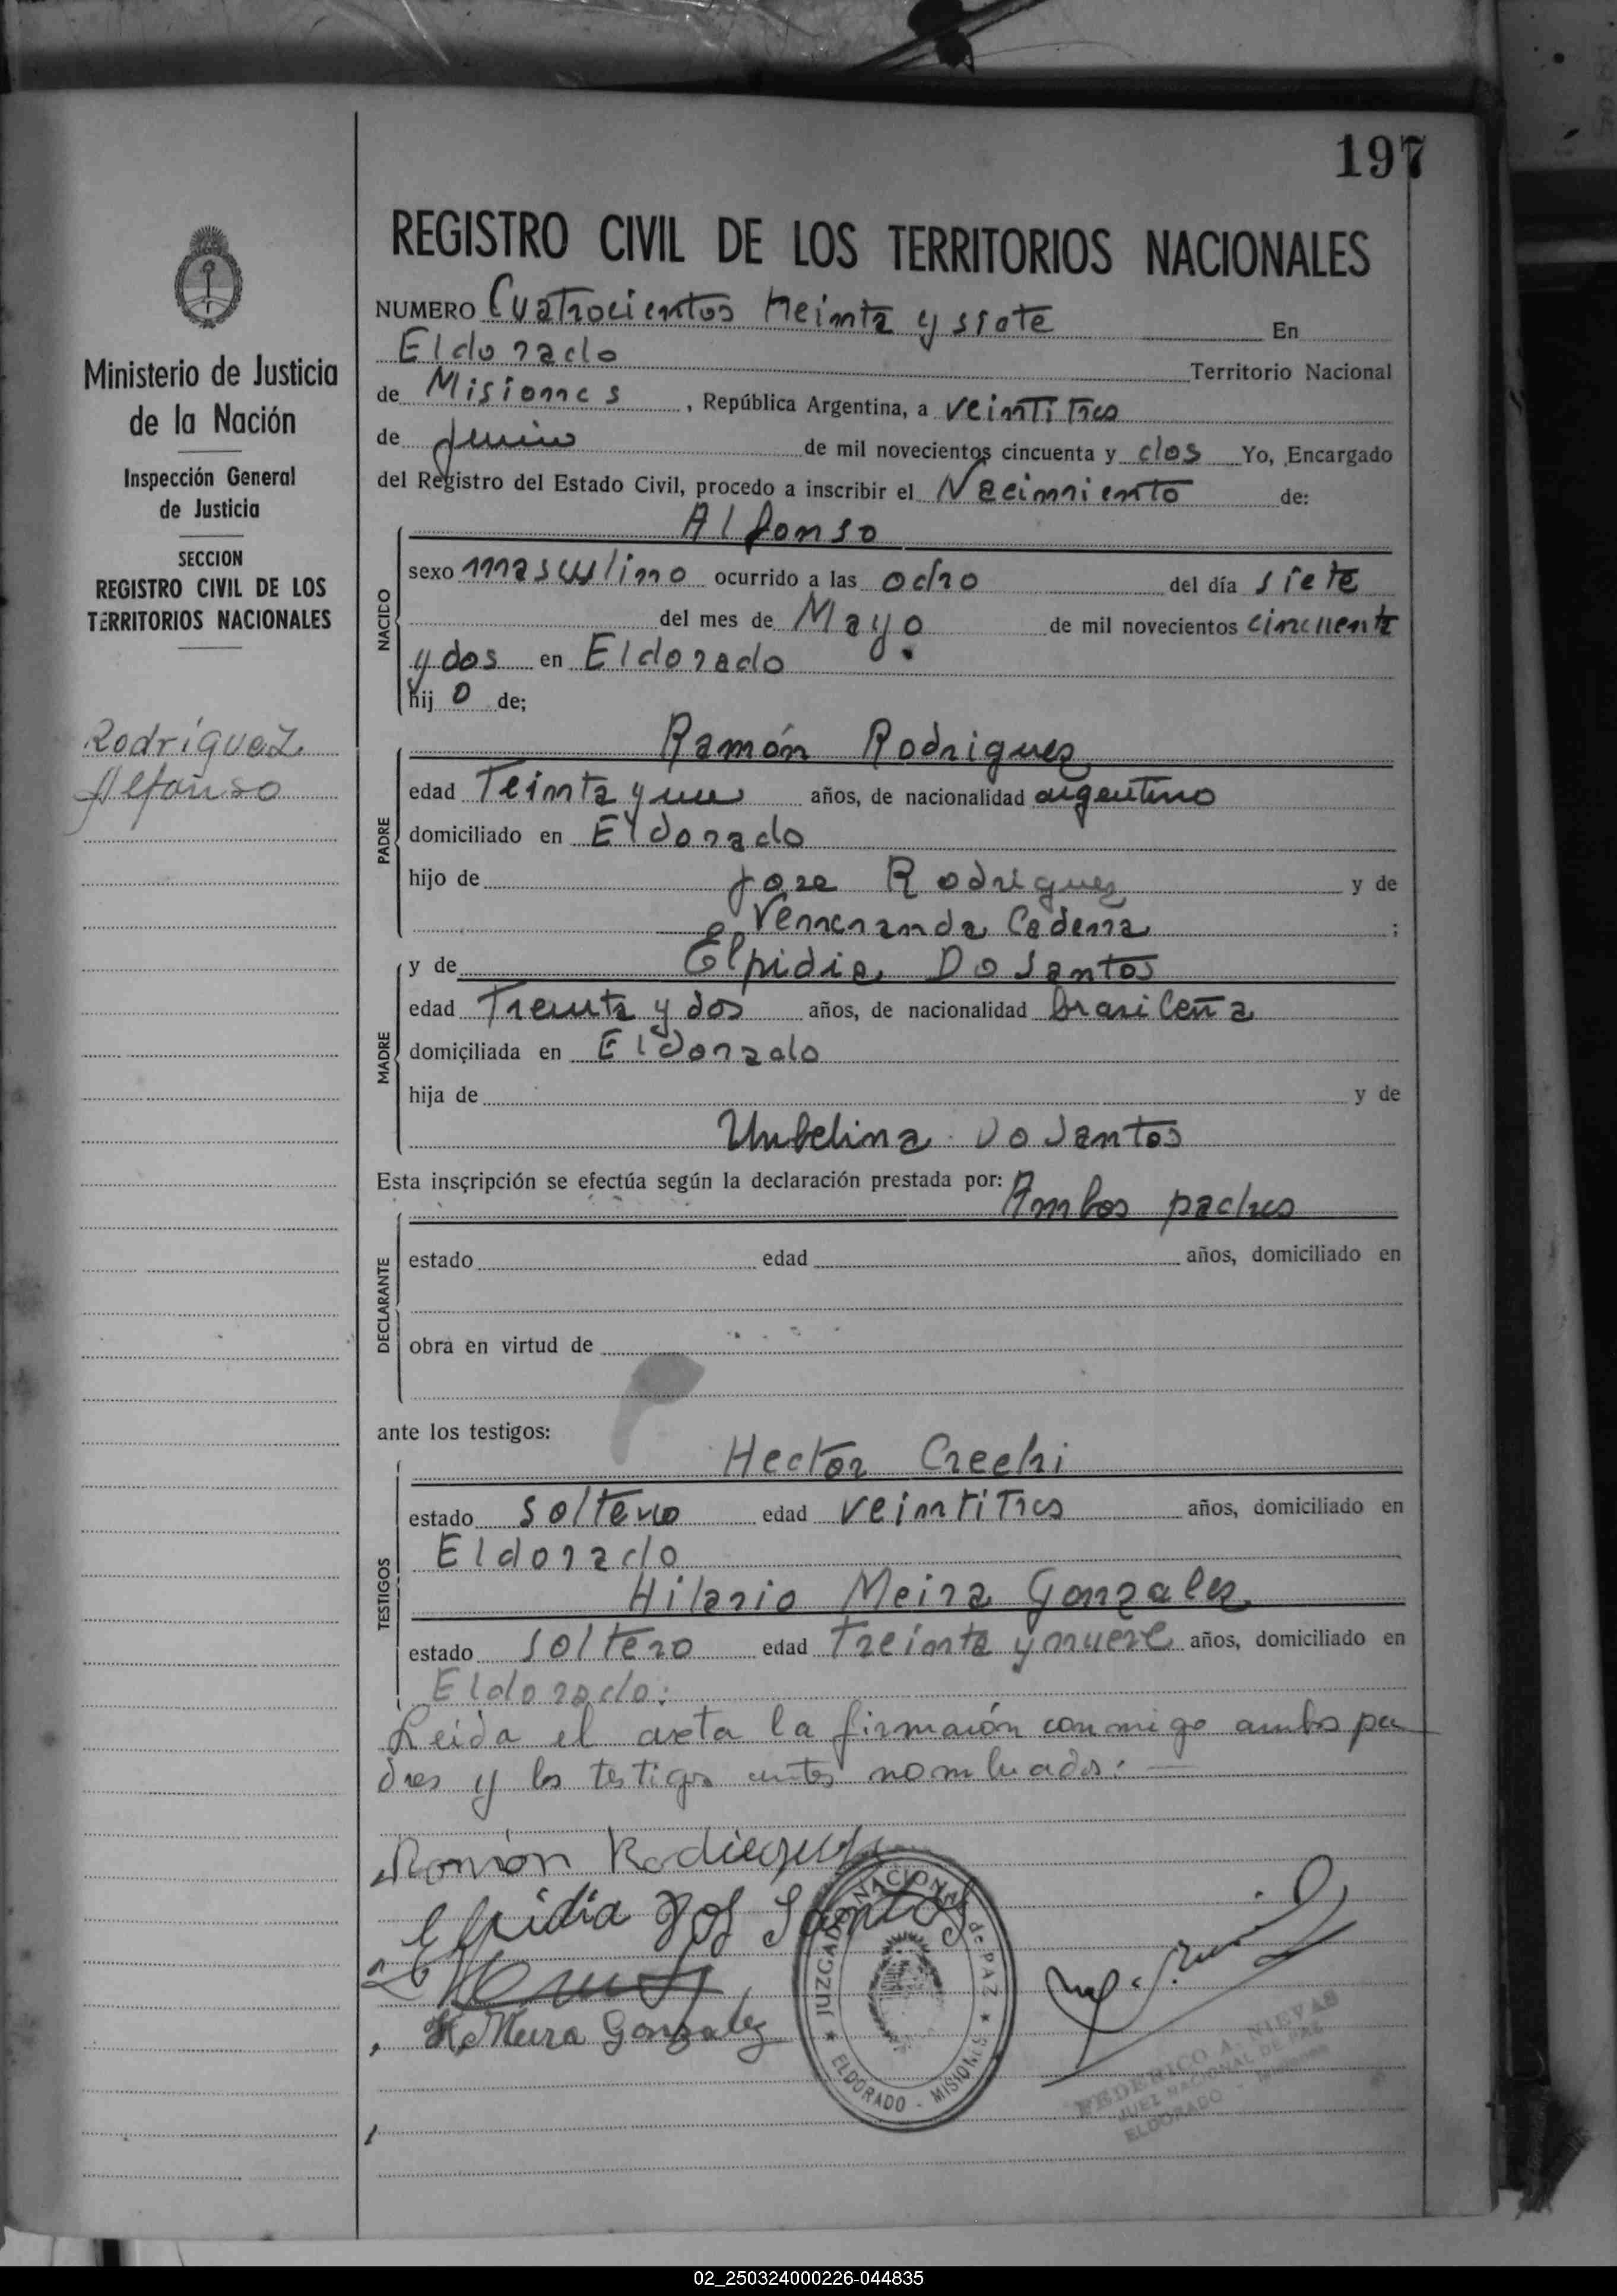 197
REGISTRO CIVIL DE LOS TERRITORIOS NACIONALES
NUMERO Cuatrocientos treinta y siete En
Eldorado Territorio Nacional
de Misiones, República Argentina, a veintitres
de junio de mil novecientos cincuenta y dos Yo, Encargado
del Registro del Estado Civil, procedo a inscribir el Nacimiento de:
Alfonso
NACIDO
sexo masculino ocurrido a las ocho del día siete
del mes de Mayo de mil novecientos cincuenta
y dos en Eldorado
hijo de;
Ramón Rodriguez
PADRE
edad Teinta y un años, de nacionalidad argentino
domiciliado en Eldorado
hijo de Jose Rodriguez y de
Venneranda Cadena ;
y de Elpidia Do Santos
MADRE
edad Treinta y dos años, de nacionalidad brasileña
domiciliada en Eldorado
hija de y de
Unbelina Do Santos
Esta inscripción se efectúa según la declaración prestada por: Ambos padres
DECLARANTE
estado edad años, domiciliado en
obra en virtud de
ante los testigos:
Hector Crechi
TESTIGOS
estado soltero edad veintitres años, domiciliado en
Eldorado
Hilario Meira Gonzalez
estado soltero edad Treinta y nueve años, domiciliado en
Eldorado.
Leida el acta la firmarón conmigo ambos pa
dres y los testigos antes nombrados: —
Ministerio de Justicia
de la Nación
Inspección General
de Justicia
SECCION
REGISTRO CIVIL DE LOS
TERRITORIOS NACIONALES
Rodríguez
Alfonso
Ramón Rodriguez
Elpidia dos Santos
H. Meira Gonzalez
JUZGADO NACIONAL de PAZ
ELDORADO - MISIONES
FEDERICO A. NIEVAS
JUEZ NACIONAL DE PAZ
ELDORADO - Misiones
02_250324000226-044835